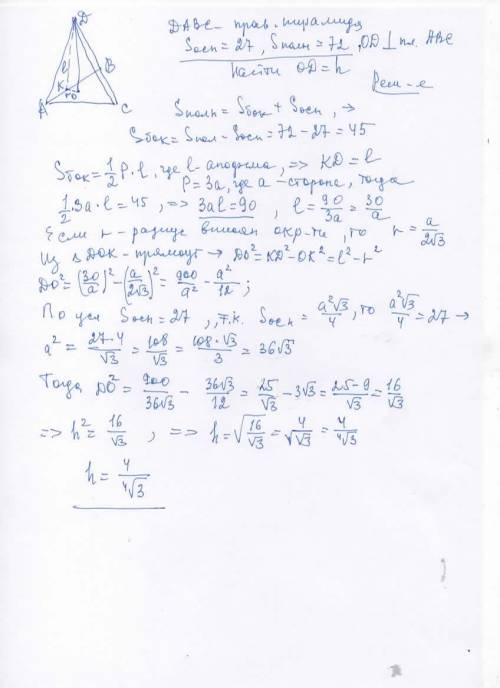 D
B
l
K
r
O
A
C
DABC - прав. пирамида
Sосн = 27, Sполн = 72, OD ⊥ пл. ABC
Найти OD = h
Реш-е
Sполн = Sбок + Sосн, →
Sбок = Sпол - Sосн = 72 - 27 = 45
Sбок = 1/2 P · l, где l - апофема, => KD = l
P = 3a, где a - сторона, тогда
1/2 · 3a · l = 45, => 3al = 90, l = 90/3a = 30/a
Если r - радиус вписан окр-ти, то r = a/2√3
Из △ DOK - прямоуг → DO² = KD² - OK² = l² - r²
DO² = (30/a)² - (a/2√3)² = 900/a² - a²/12;
По усл Sосн = 27, т.к. Sосн = a²√3/4, то a²√3/4 = 27 →
a² = 27·4/√3 = 108/√3 = 108·√3/3 = 36√3
Тогда DO² = 900/36√3 - 36√3/12 = 25/√3 - 3√3 = 25-9/√3 = 16/√3
=> h² = 16/√3, => h = √16/√3 = 4/√√3 = 4/⁴√3
h = 4/⁴√3